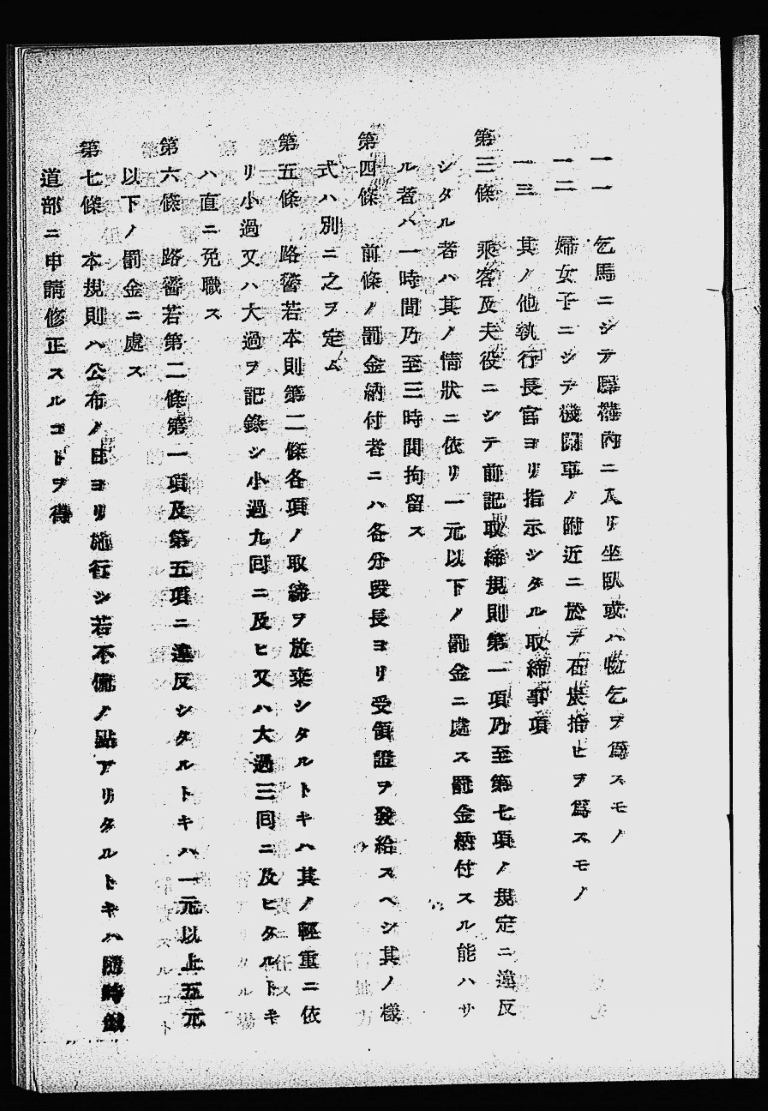 一一 乞馬ニシテ驛構內ニ入リ坐臥或ハ物乞ヲ爲スモノ
一二 婦女子ニシテ機關車ノ附近ニ於テ石炭拾ヒヲ爲スモノ
一三 其ノ他執行長官ヨリ指示シタル取締事項
第三條 乘客及夫役ニシテ前記取締規則第一項乃至第七項ノ規定ニ違反
シタル者ハ其ノ情狀ニ依リ一元以下ノ罰金ニ處ス罰金納付スル能ハサ
ル者ハ一時間乃至三時間拘留ス
第四條 前條ノ罰金納付者ニハ各分段長ヨリ受領證ヲ發給スヘシ其ノ樣
式ハ別ニ之ヲ定ム
第五條 路警若本則第二條各項ノ取締ヲ放棄シタルトキハ其ノ輕重ニ依
リ小過又ハ大過ヲ記錄シ小過九回ニ及ヒ又ハ大過三回ニ及ヒタルトキ
ハ直ニ免職ス
第六條 路警若第二條第一項及第五項ニ違反シタルトキハ一元以上五元
以下ノ罰金ニ處ス
第七條 本規則ハ公布ノ日ヨリ施行シ若不備ノ點アリタルトキハ隨時鐵
道部ニ申請修正スルコトヲ得